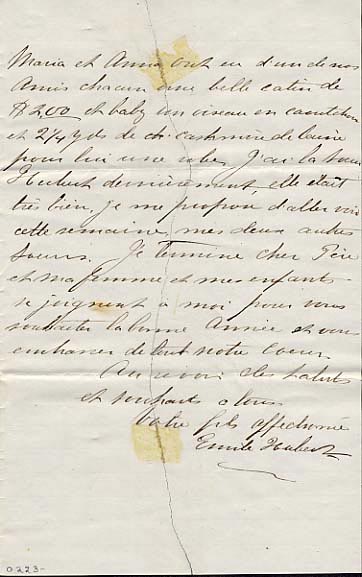 Maria et Anna ont eu d'un de nos
Amis chacun une belle catin de
$2.00 et baby un oiseau en caoutchou
et 2 1/4 yds de cashmire de laine
pour lui une robe. J'ai la Soeur
Hubert dernièrement, elle était
très bien, je me propose d'aller voir
cette semaine, mes deux autres
Soeurs. Je termine cher Père
et ma femme et mes enfants
se joignent a moi pour vous
souhaiter la bonne Année et vous
embrasser de tout notre Coeur
Au revoir des saluts
et souhaits a tous
Votre fils affectionné
Emile Hubert
0223-